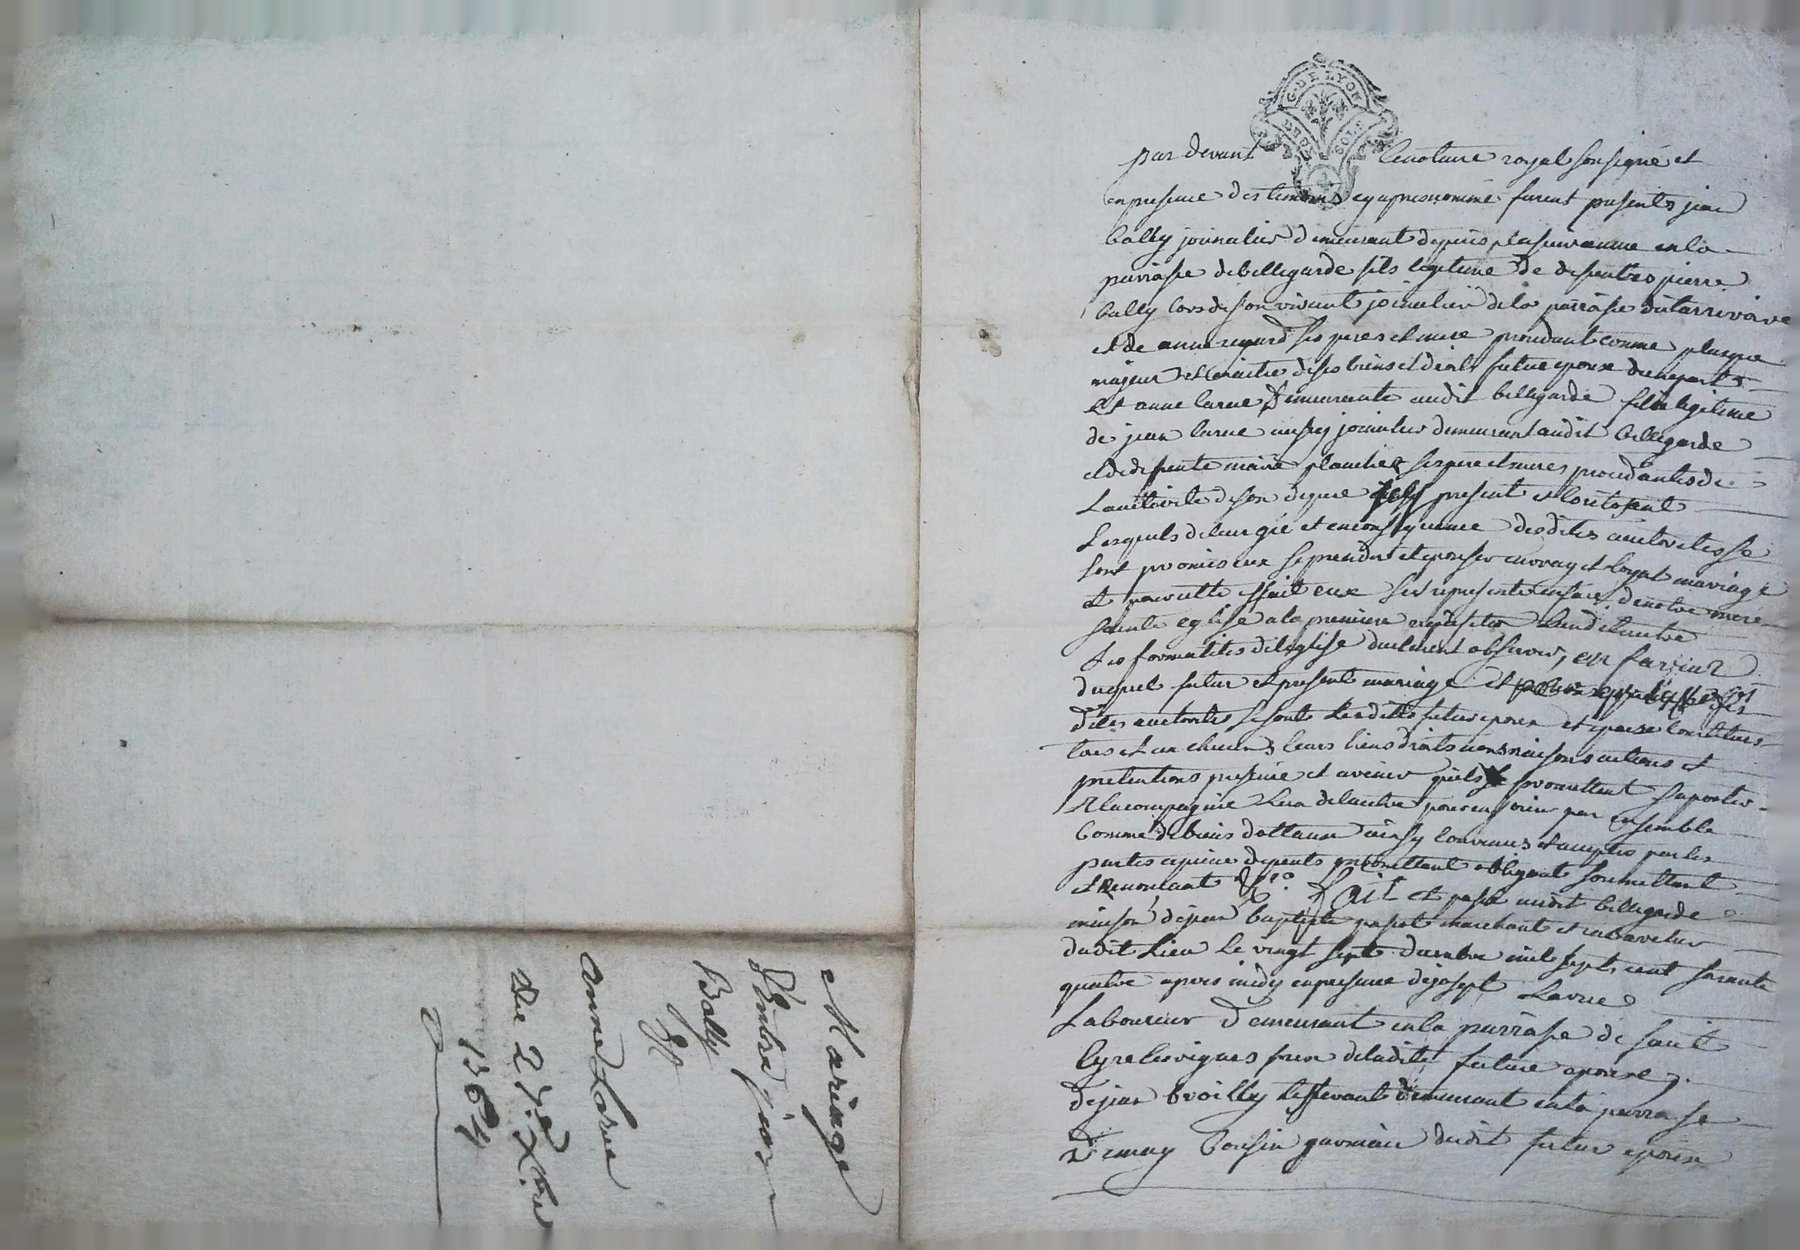 G. DE LYON
DEUX SOLS
par devant le notaire royal sousigné et
en presence des temoins cy apres nommé furent presents jean
bally journalier demeurant depuis plusieur année en la
parroisse de bellegarde fils legitime de defunt pierre
bally lors de son vivant journalier de la parroisse
et de anne ses pere et mere procedant comme
majeur et maitre de ses biens et droits futur epoux d'une part
Et anne larue demeurante audit bellegarde fille legitime
de jean larue aussy journalier demeurant audit bellegarde
et de defunte marie planchet ses pere et mere procedante de
L'autorité de son dit pere present et
Lesquels de leur gré et en consequence desdites autorités se
sont promis eux se prendre et epouser en vray et loyal mariage
et pour cette effait eux se representer en face de notre mere
sainte eglise a la premiere requisition L'un de l'autre
Les formalités de l'eglise duement observés, en faveur
duquel futur et present mariage et
dites autorités se sont lesdits futur epoux et epouse constitués
tous et un chacuns leurs biens droits noms raisons actions et
pretentions presens et avenir quils promettent s'aporter
A la compagnie L'un de l'autre pour en jouir par ensemble
Comme de biens dottaux ainsy convenus et acceptés par les
parties a peine depents promettant obligeant soumettant
et renonçant &ca. Fait et passé audit bellegarde
maison de jean baptiste marchant et cabaretier
dudit Lieu Le vingt sept decembre mil sept cent soixante
quatre apres midy en presence de josept Larue
Laboureur demeurant en la parroisse de saint
Cyr les vignes frere de ladite future epouse,
de jean demeurant en la parroisse
Cousin germain dudit futur epoux
Mariage
D'entre jean
Bally
&
anne Larue
Du 27.e Xbre
1764